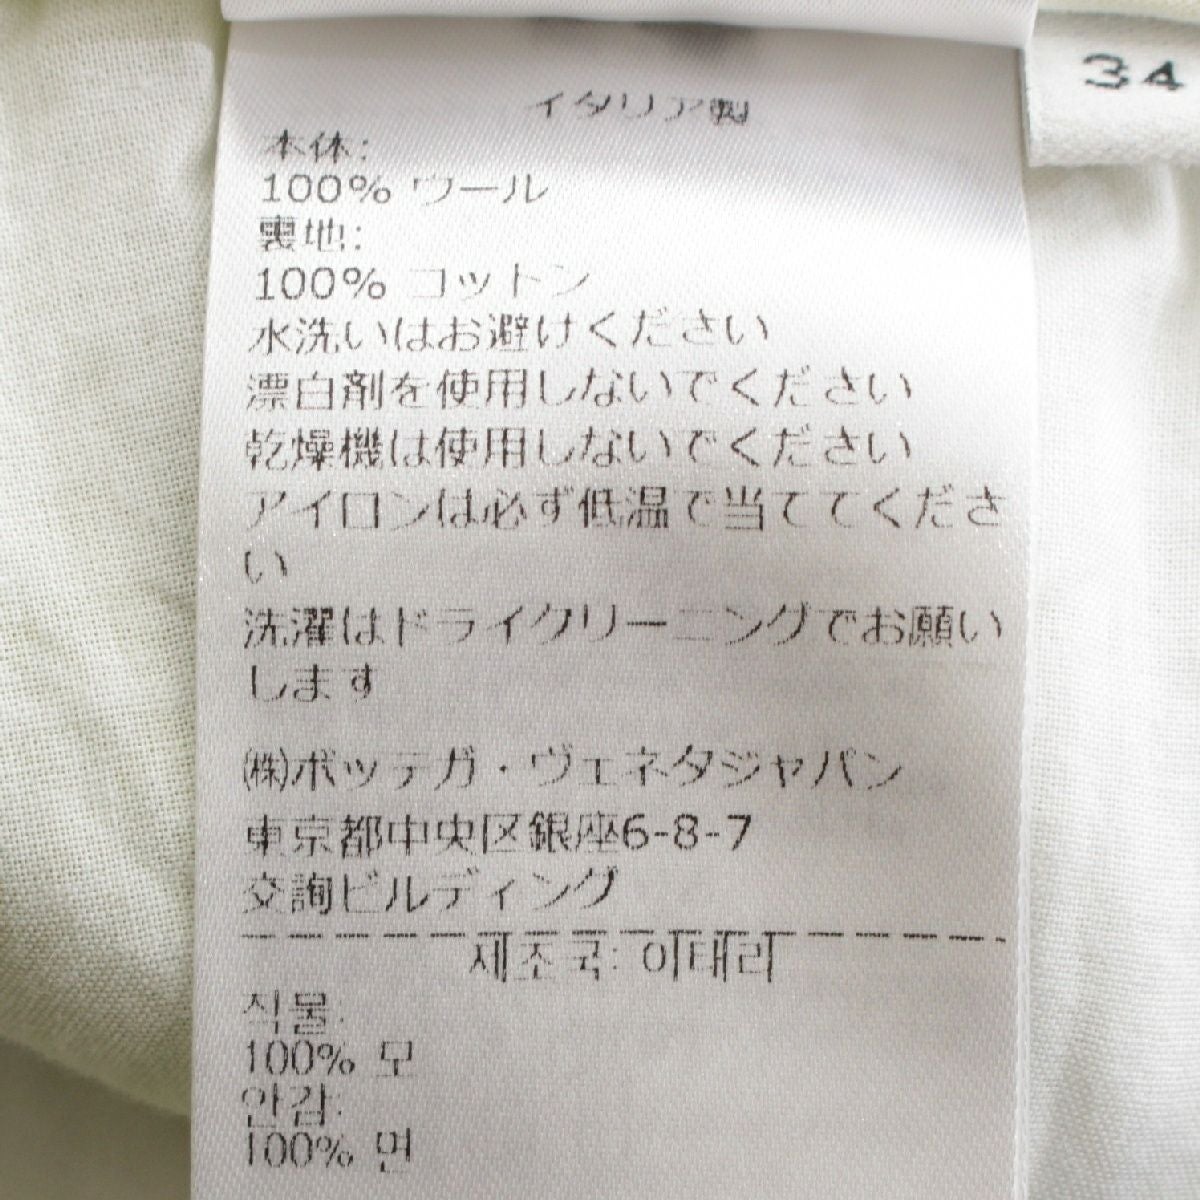 34
イタリア製
本体:
100% ウール
裏地:
100% コットン
水洗いはお避けください
漂白剤を使用しないでください
乾燥機は使用しないでください
アイロンは必ず低温で当ててくださ
い
洗濯はドライクリーニングでお願い
します
㈱ボッテガ・ヴェネタジャパン
東京都中央区銀座6-8-7
交詢ビルディング
제조국: 이태리
직물:
100% 모
안감:
100% 면